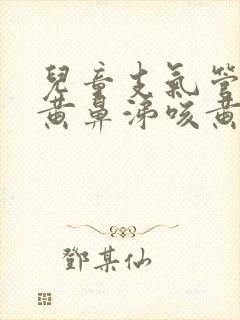 兒童支氣管
黃鼻涕咳黃
鄧某仙